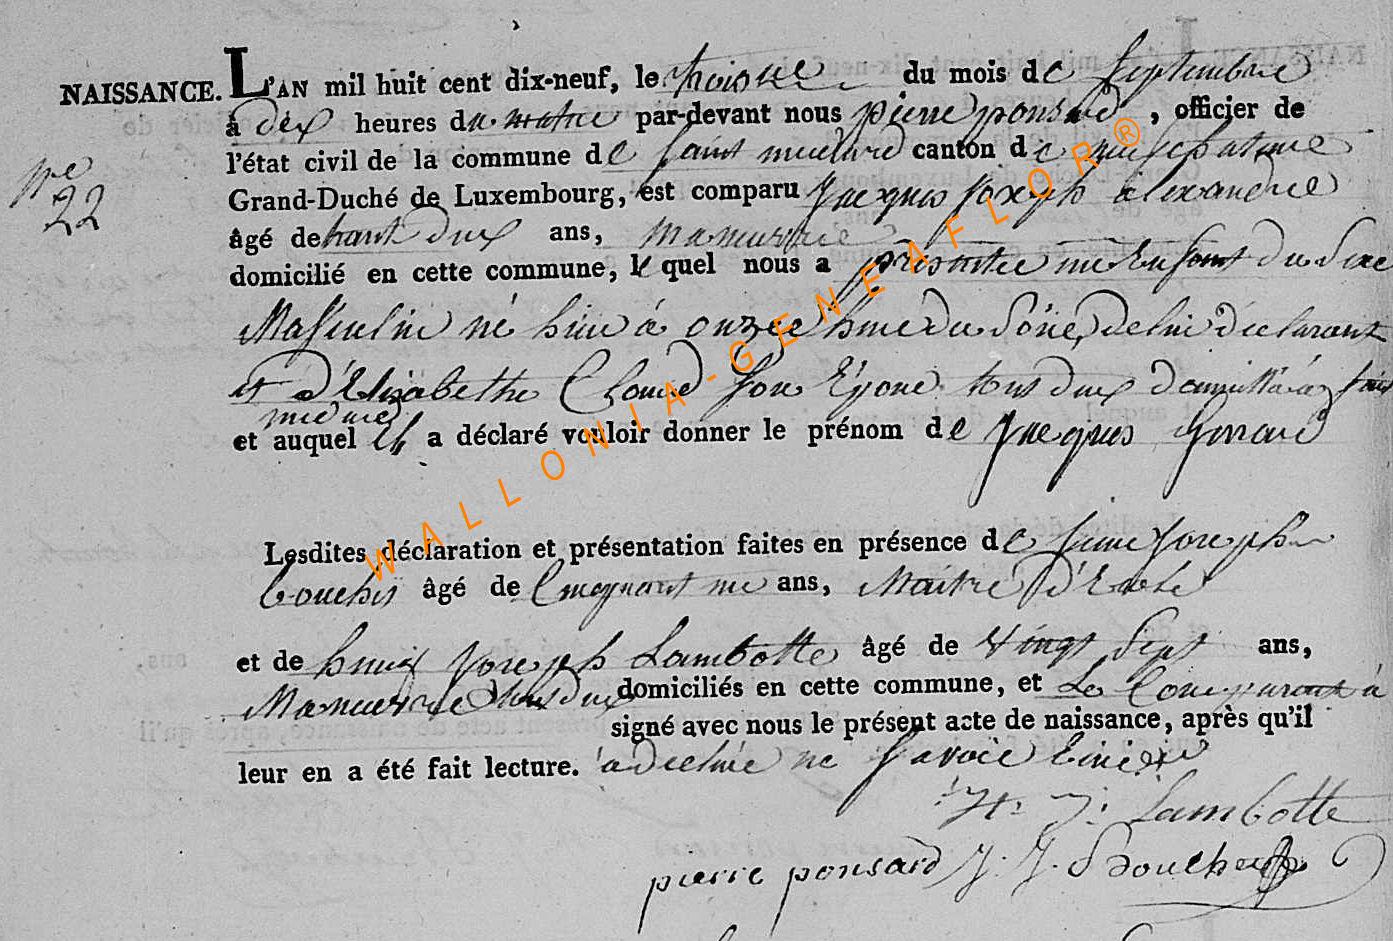 NAISSANCE. L'AN mil huit cent dix-neuf, le troisie du mois de Septembre
à dix heures du matin par-devant nous pierre ponsard, officier de
l'état civil de la commune de saint medard canton de neufchateau
n.re 22
Grand-Duché de Luxembourg, est comparu Jacques Joseph alexandre
âgé de trent deux ans, maneuvre
domicilié en cette commune, le quel nous a présentée un Enfant du Sexe
Masculin né hier à onze heure du Soire, de lui declarant
et d'Elizabethe son Epouse tous deux
medard
et auquel il a déclaré vouloir donner le prénom de Jacques Gerard
Lesdites déclaration et présentation faites en présence de Jean Joseph
bouchez âgé de Cinquant un ans, Maitre D'Ecole
et de Joseph Lambotte âgé de vingt Sept ans,
Maneuvre tous deux domiciliés en cette commune, et Le Comparant à
signé avec nous le présent acte de naissance, après qu'il
leur en a été fait lecture. à declaré ne savoir
H. J. Lambotte
pierre ponsard J. J. Bouchez
WALLONIA-GENEAFLOR®